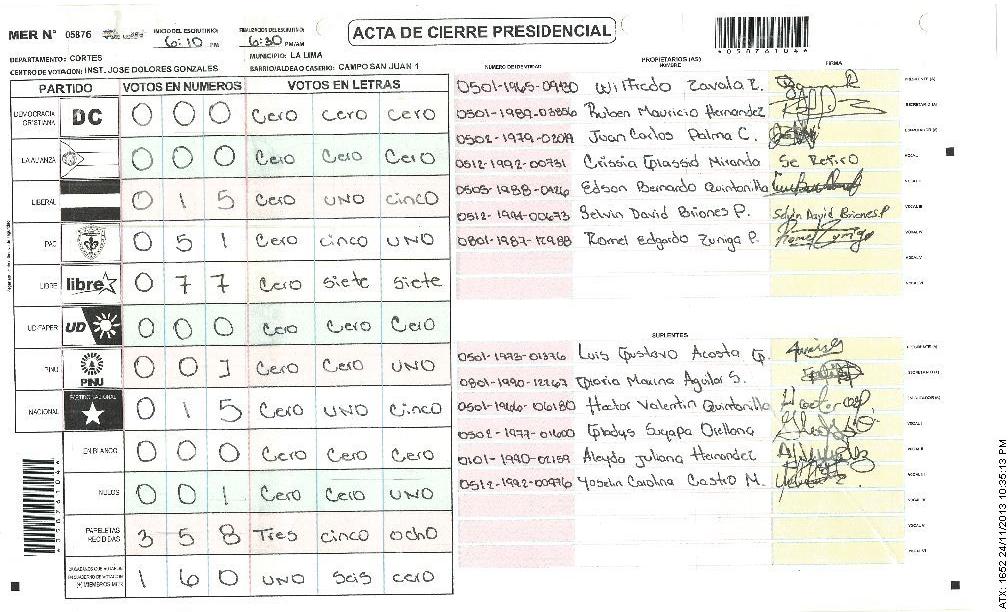 MER N° 05876
INICIO DEL ESCRUTINIO: 6:10 PM
FINALIZACION DEL ESCRUTINIO: 6:30 PM/AM
ACTA DE CIERRE PRESIDENCIAL
DEPARTAMENTO: CORTES
MUNICIPIO: LA LIMA
CENTRO DE VOTACION: INST. JOSE DOLORES GONZALES
BARRIO/ALDEA O CASERIO: CAMPO SAN JUAN 1
PARTIDO VOTOS EN NUMEROS VOTOS EN LETRAS
DEMOCRACIA CRISTIANA DC 0 0 0 Cero Cero Cero
LA ALIANZA 0 0 0 Cero Cero Cero
LIBERAL 0 1 5 Cero UNO cinco
PAC 0 5 1 Cero cinco UNO
LIBRE libre 0 7 7 Cero siete siete
UD-FAPER UD 0 0 0 Cero Cero Cero
PINU PINU 0 0 1 Cero Cero UNO
NACIONAL PARTIDO NACIONAL 0 1 5 Cero UNO cinco
EN BLANCO 0 0 0 Cero Cero Cero
NULOS 0 0 1 Cero Cero UNO
PAPELETAS RECIBIDAS 3 5 8 Tres cinco ocho
1 6 0 UNO seis cero
NUMERO DE IDENTIDAD PROPIETARIOS (AS) NOMBRE FIRMA
Wilfredo Zavala Z.
Ruben Mauricio Hernandez
Juan Carlos Palma C.
0512-1992-00731 Crissia Miranda Se Retiro
Edson Bernardo Quintanilla
0512-1994-00673 Selvin David Briones P. Selvin David Briones P
Romel Edgardo Zuniga P.
SUPLENTES
0501-1973-01376 Luis Gustavo Acosta G.
0801-1990-12167 Gloria Marina Aguilar S.
Hector Valentin Quintanilla
Gladys Suyapa Orellana
0101-1990-02159 Aleyda Juliana Hernandez
Yoselin Carolina Castro M.
ATX: 1652 24/11/2013 10:35:13 PM